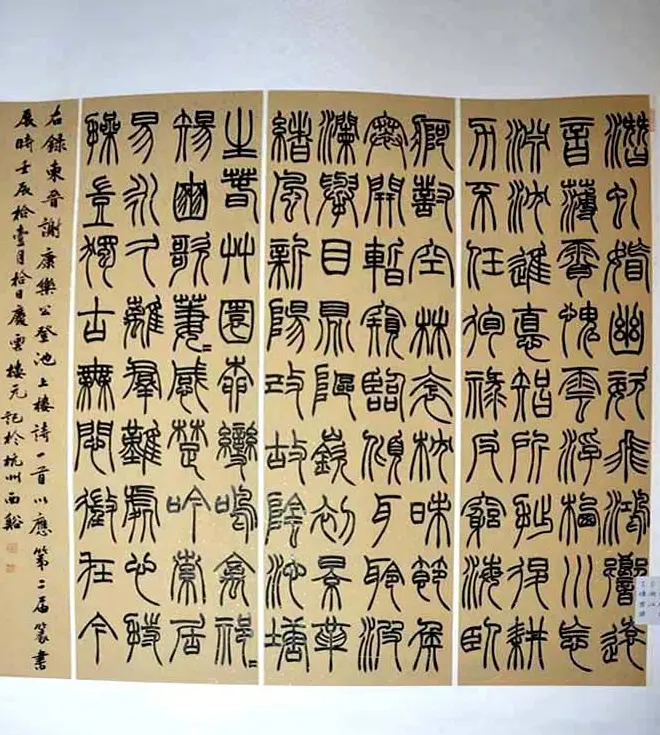 潛虬媚幽姿飛鴻響遠
音薄霄愧雲浮棲川怍
淵沈進悳智所拙退耕
力不任徇祿反窮海臥
疴對空林衾枕昧節候
褰開暫窺臨傾耳聆波
瀾舉目眺嶇嶔初景革
緒風新陽改故陰池塘
生春草園柳變鳴禽祁=
傷豳歌萋=感楚吟索居
易永久離羣難處心持
操豈獨古無悶徵在今
右錄東晉謝康樂公登池上樓詩一首以應第二屆篆書
展時壬辰拾壹月拾日慶雲樓元記於杭州西谿